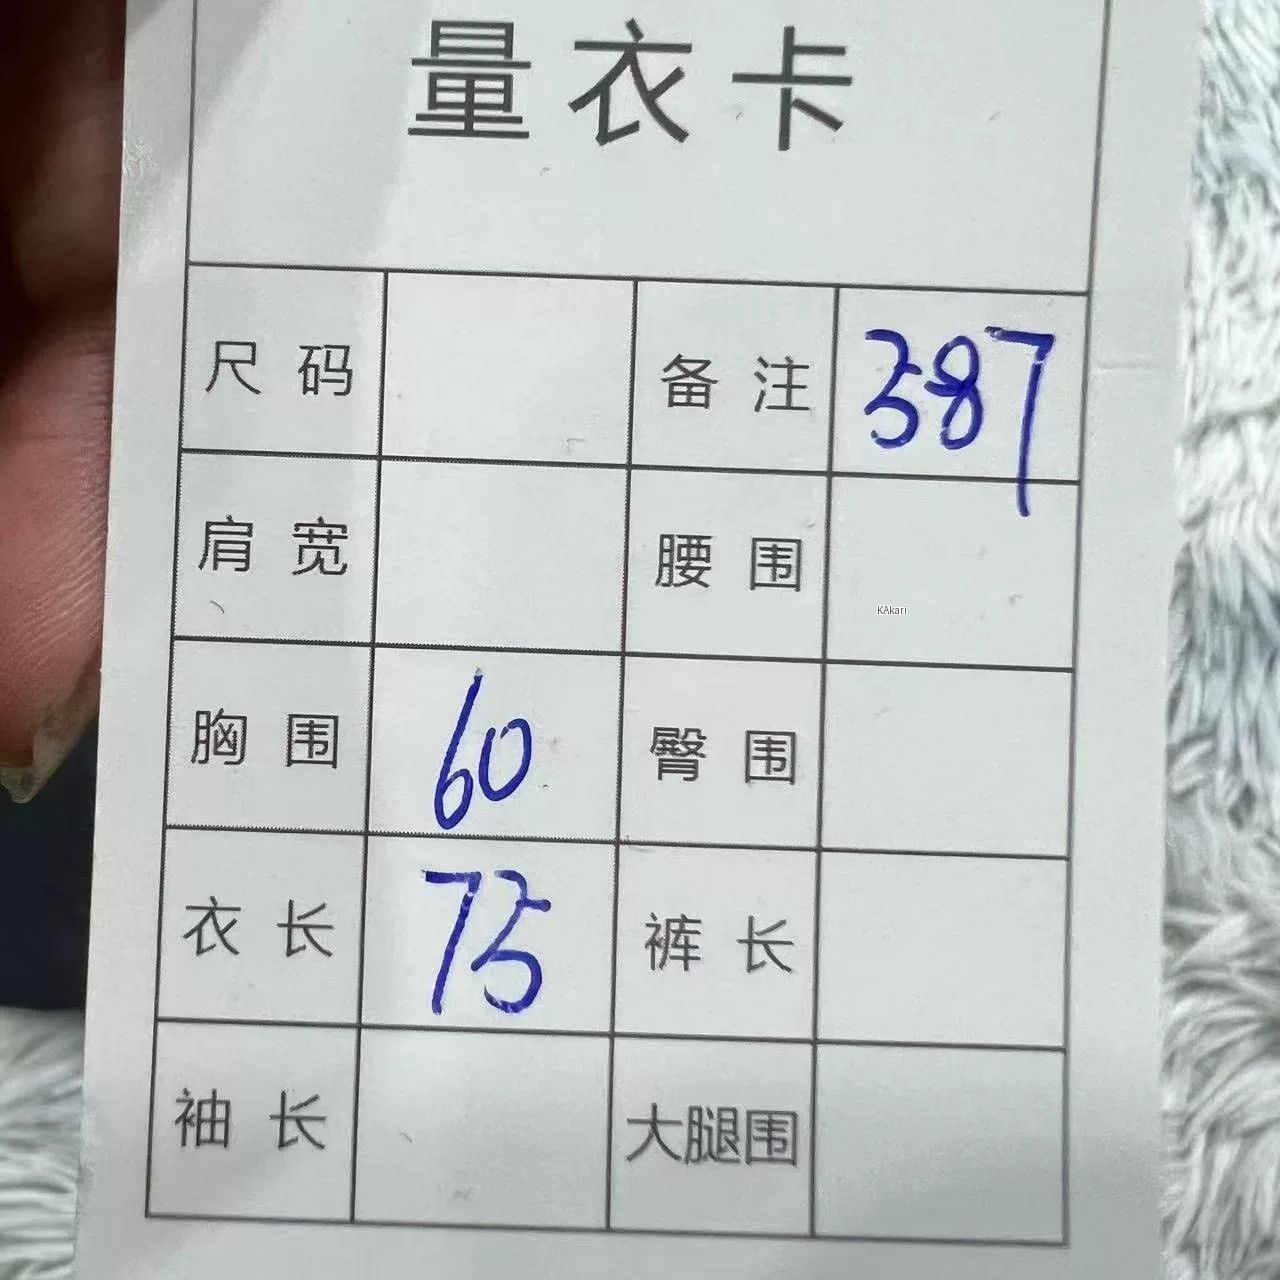 量衣卡
尺码 备注 587
肩宽 腰围
KAkari
胸围 60 臀围
衣长 75 裤长
袖长 大腿围